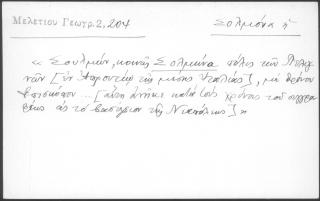 Μελετίου Γεωγρ. 2, 204
Σολμόνα ἡ
« Σουλμών, κοινῶς Σολμόνα πόλις τῶν Πελιγ
νῶν [ἐν Ἀπρουτίῳ τῆς Ἰταλίας], μὲ θρόνον
ἐπισκόπου ... [αὕτη ἀνῆκε κατὰ τοὺς χρόνους τοῦ συγγρα
φέως εἰς τὸ βασίλειον τῆς Νεαπόλεως] »